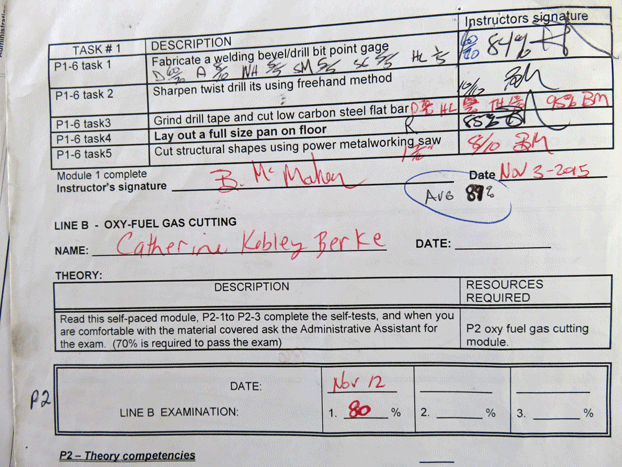 Instructors signature
TASK # 1 DESCRIPTION
P1-6 task 1 Fabricate a welding bevel/drill bit point gage 84%
P1-6 task 2 Sharpen twist drill its using freehand method 10/10 BM
P1-6 task3 Grind drill tape and cut low carbon steel flat bar 95% BM
P1-6 task4 Lay out a full size pan on floor 85%
P1-6 task5 Cut structural shapes using power metalworking saw 8/10 BM
Module 1 complete
Instructor's signature B. McMahon Date Nov 3-2015
AVG 89%
LINE B - OXY-FUEL GAS CUTTING
NAME: Catherine Kobley Berke DATE:
THEORY:
DESCRIPTION RESOURCES REQUIRED
Read this self-paced module, P2-1to P2-3 complete the self-tests, and when you
are comfortable with the material covered ask the Administrative Assistant for
the exam. (70% is required to pass the exam)
P2 oxy fuel gas cutting
module.
P2
DATE: Nov 12
LINE B EXAMINATION: 1. 80 % 2. % 3. %
P2 – Theory competencies